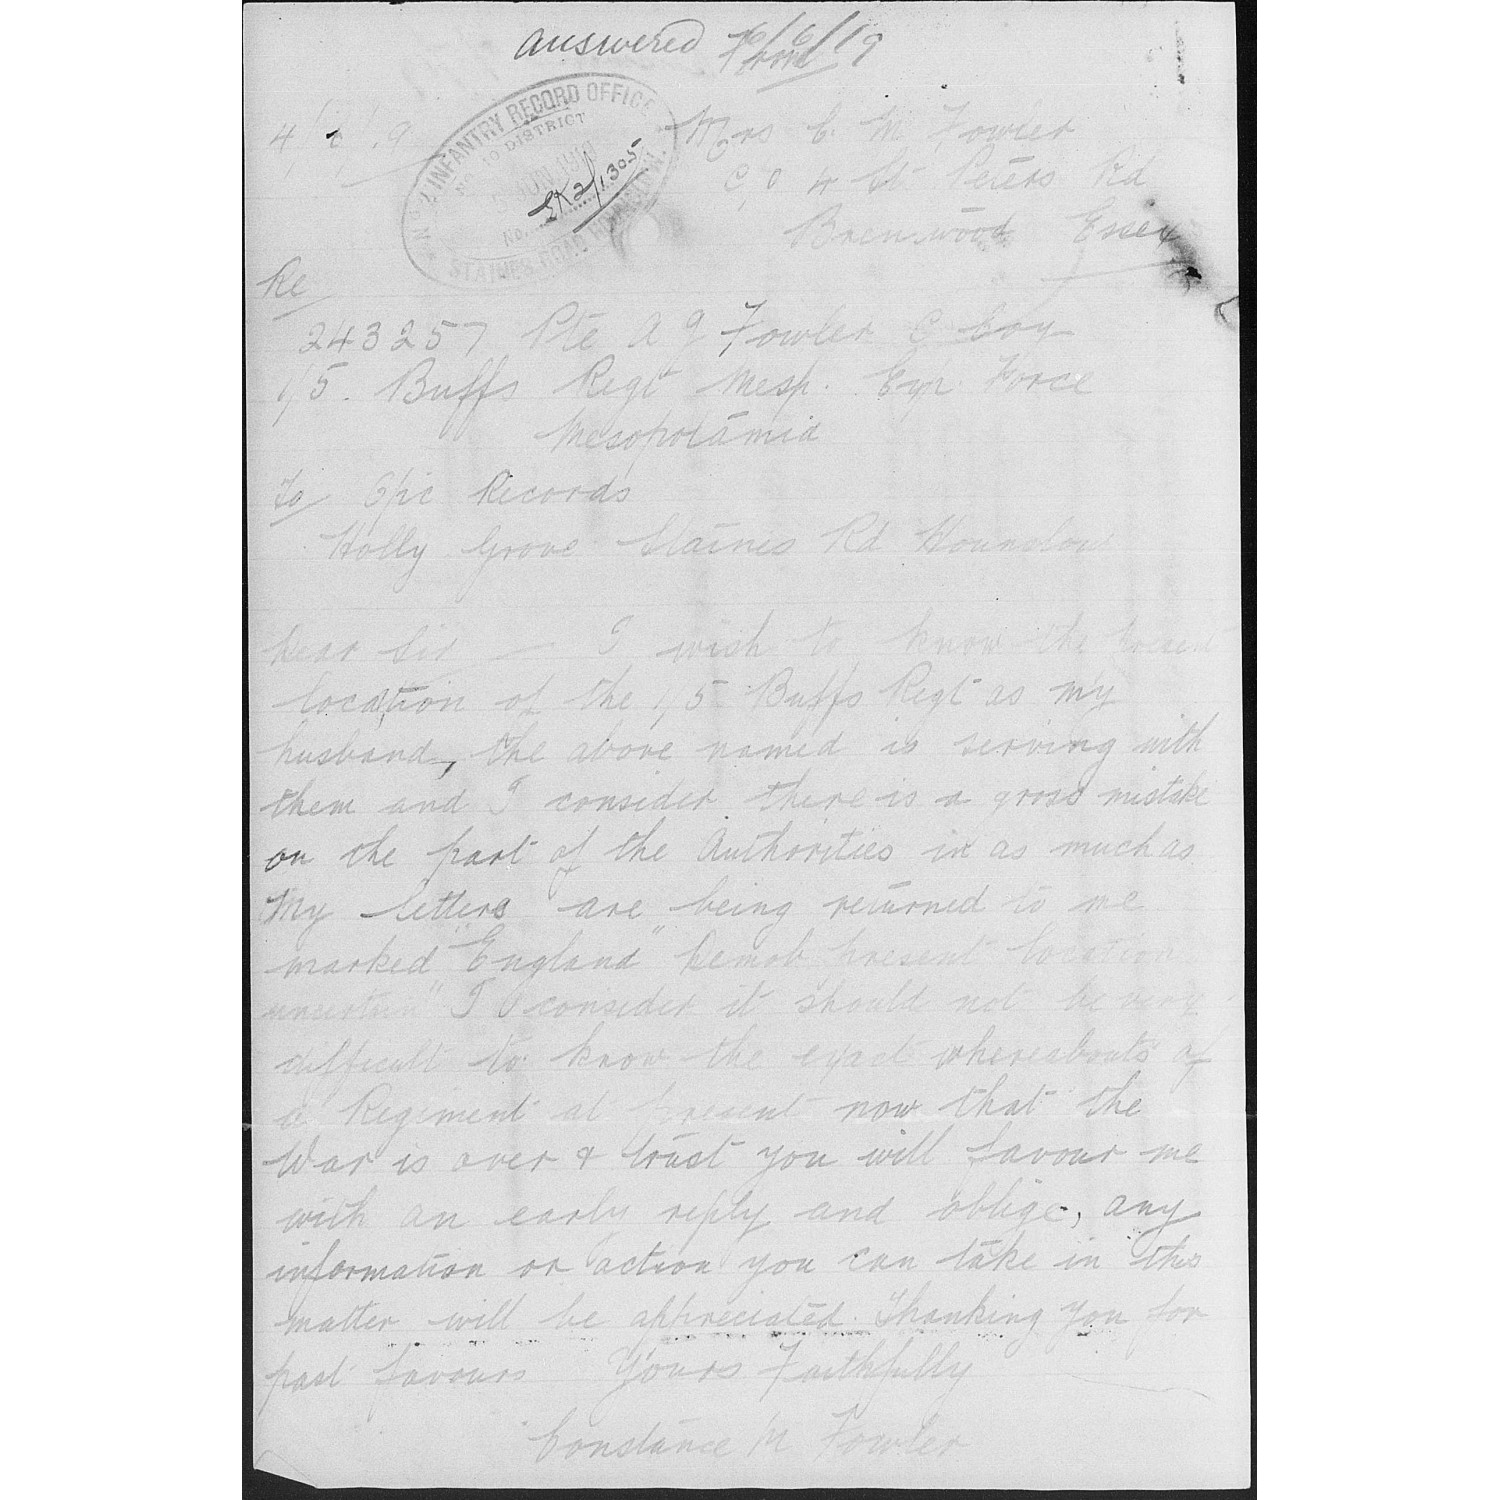 answered 6/6/19
4/6/19 Mrs C. M. Fowler
C/O 4 St Peters Rd
Brentwood Essex
No 2 INFANTRY RECORD OFFICE
No. 10 DISTRICT
5 JUN 1919
No. EK2/1305
STAINES ROAD HOUNSLOW.
Re
243257 Pte A G Fowler C Coy
1/5. Buffs Regt Mesp. Exp. Force
Mesopotamia
To O/ic Records
Holly Grove Staines Rd Hounslow
Dear Sir — I wish to know the present
location of the 1/5 Buffs Regt as my
husband, the above named is serving with
them and I consider there is a gross mistake
on the part of the Authorities in as much as
My letters are being returned to me
marked "England" Demob present location
uncertain" I consider it should not be very
difficult to know the exact whereabouts of
a Regiment at present now that the
War is over & trust you will favour me
with an early reply and oblige, any
information or action you can take in this
matter will be appreciated. Thanking you for
past favours Yours Faithfully
Constance M Fowler